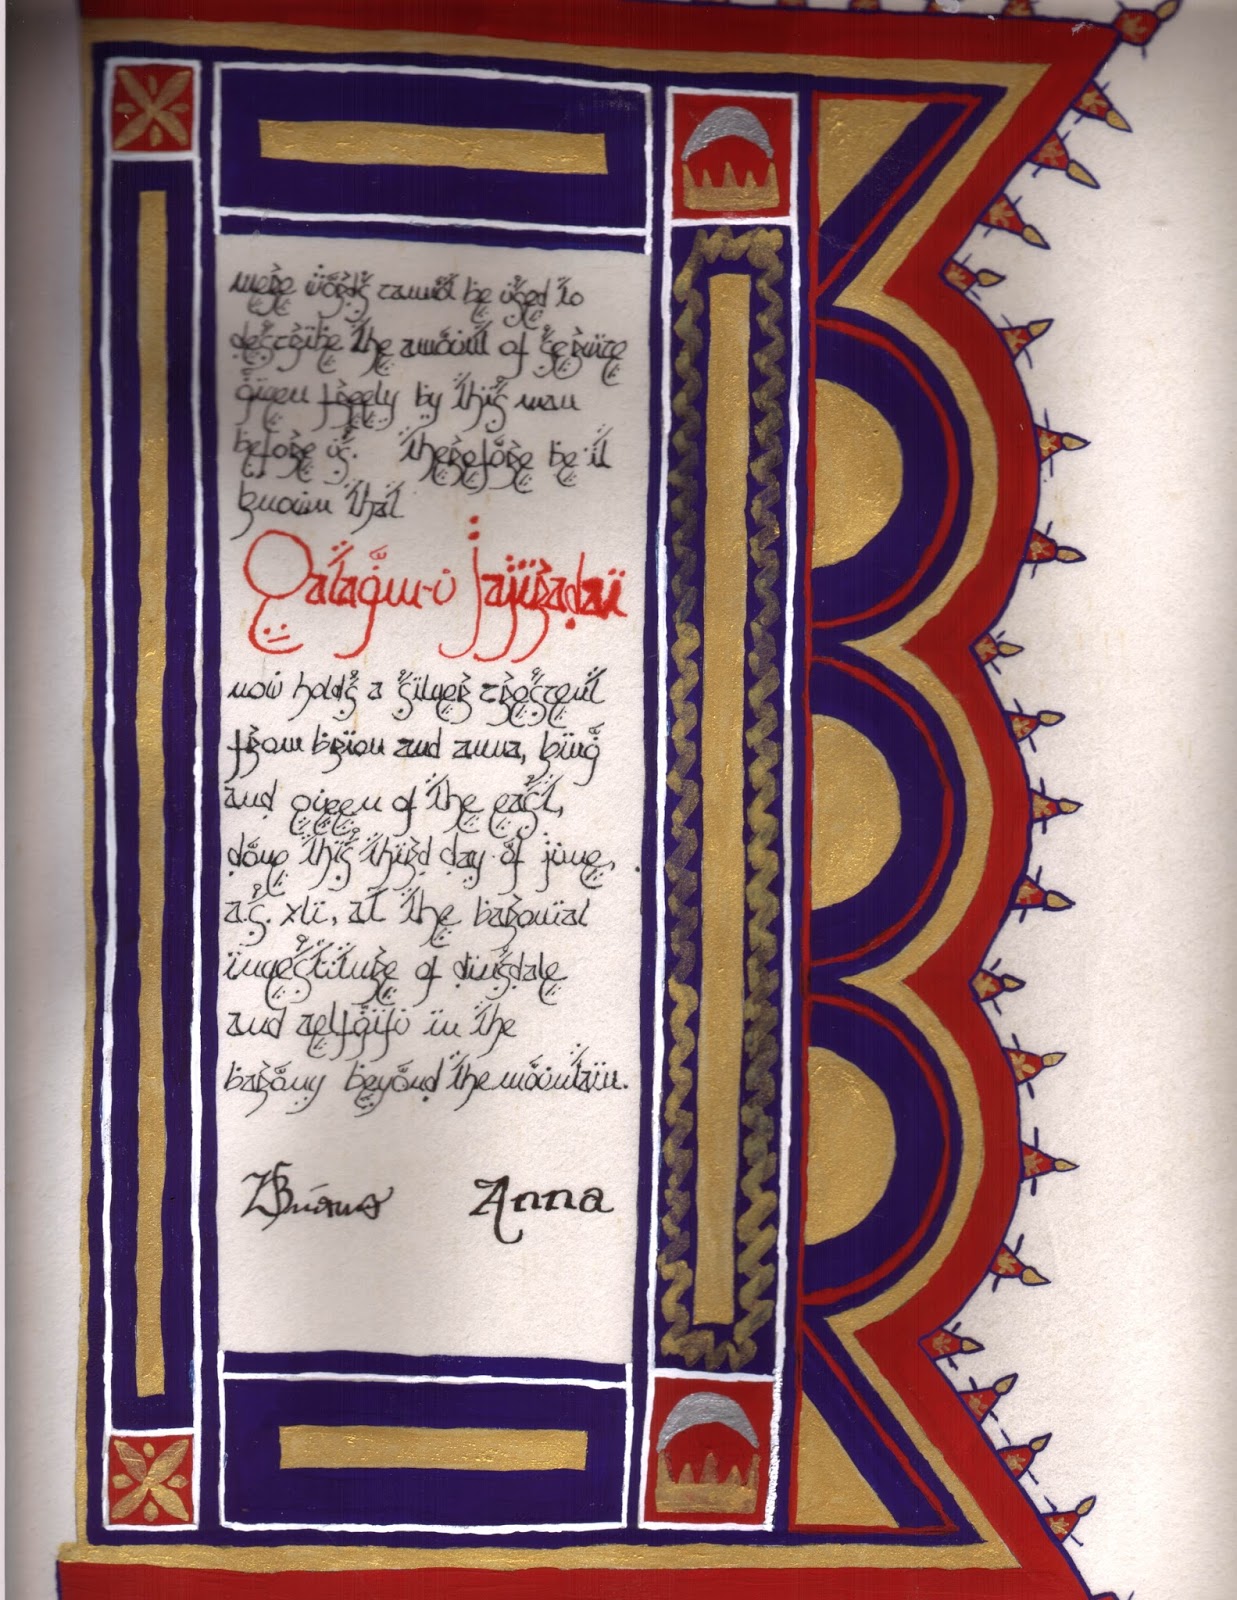 mere words cannot be used to
describe the amount of service
given freely by this man
before us. Therefore be it
known that
Qatagin-u Jajiradai
now holds a silver crescent
from brion and anna, king
and queen of the east,
done this third day of june,
a.s. xli, at the baronial
investiture of dinsdale
and aelfgifu in the
barony beyond the mountain.
Anna